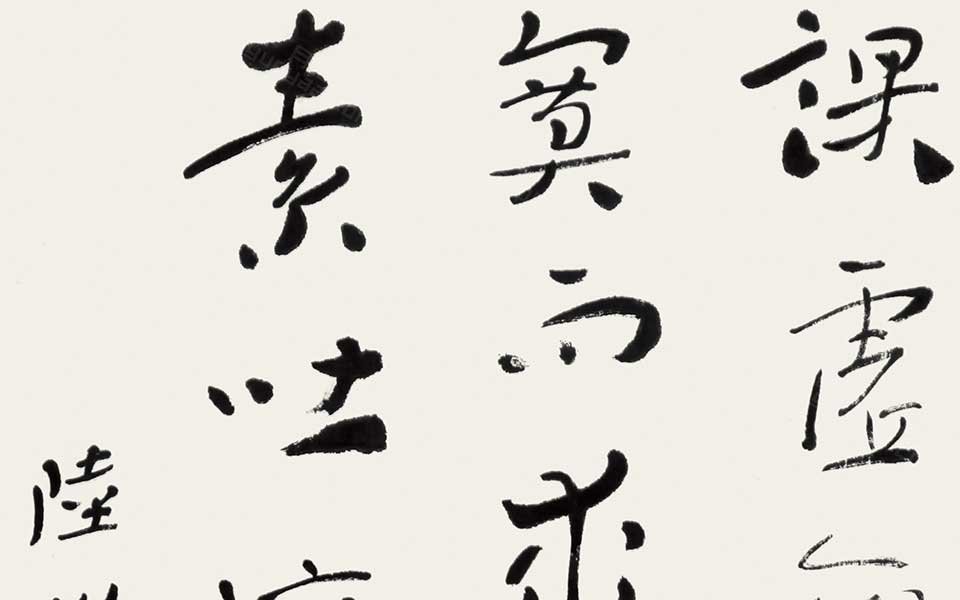 課虛
寞而求
素吐
陸